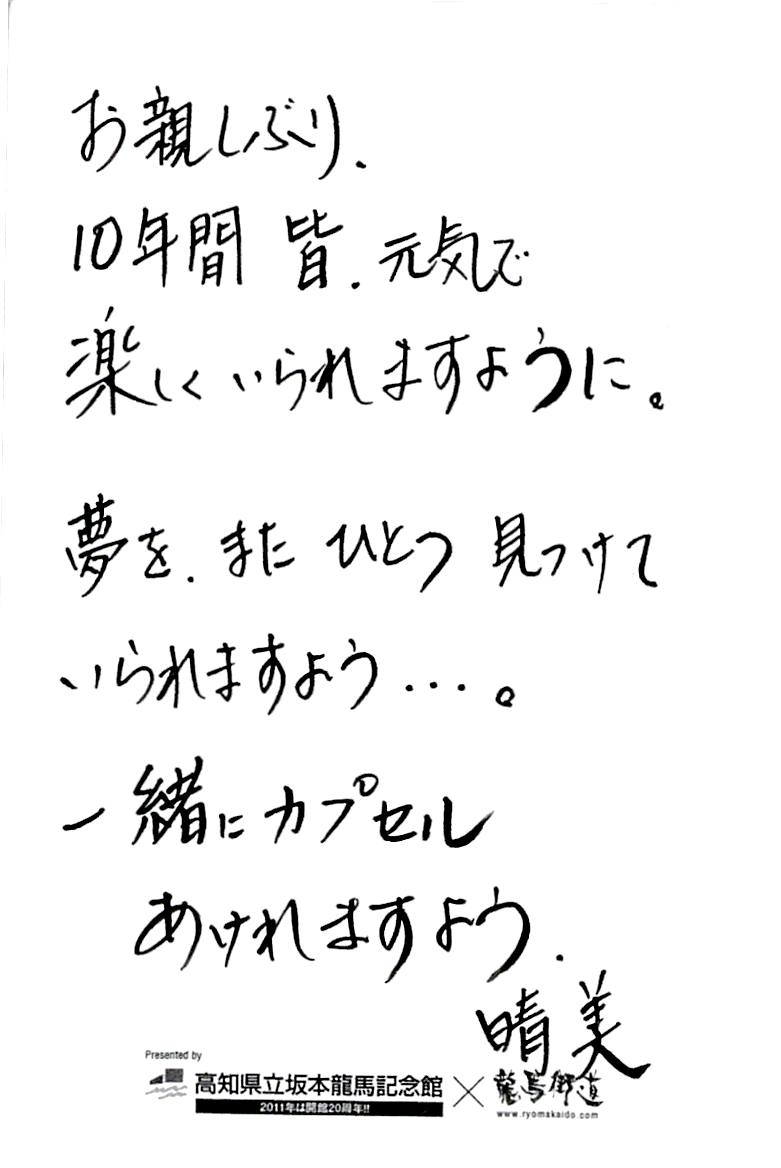 お親しぶり.
10年間 皆. 元気で
楽しくいられますように。
夢を. また ひとつ 見つけて
いられますよう…。
一緒にカプセル
あけれますよう.
晴美
Presented by
高知県立坂本龍馬記念館 × 龍馬街道
2011年は開館20周年!!
www.ryomakaido.com